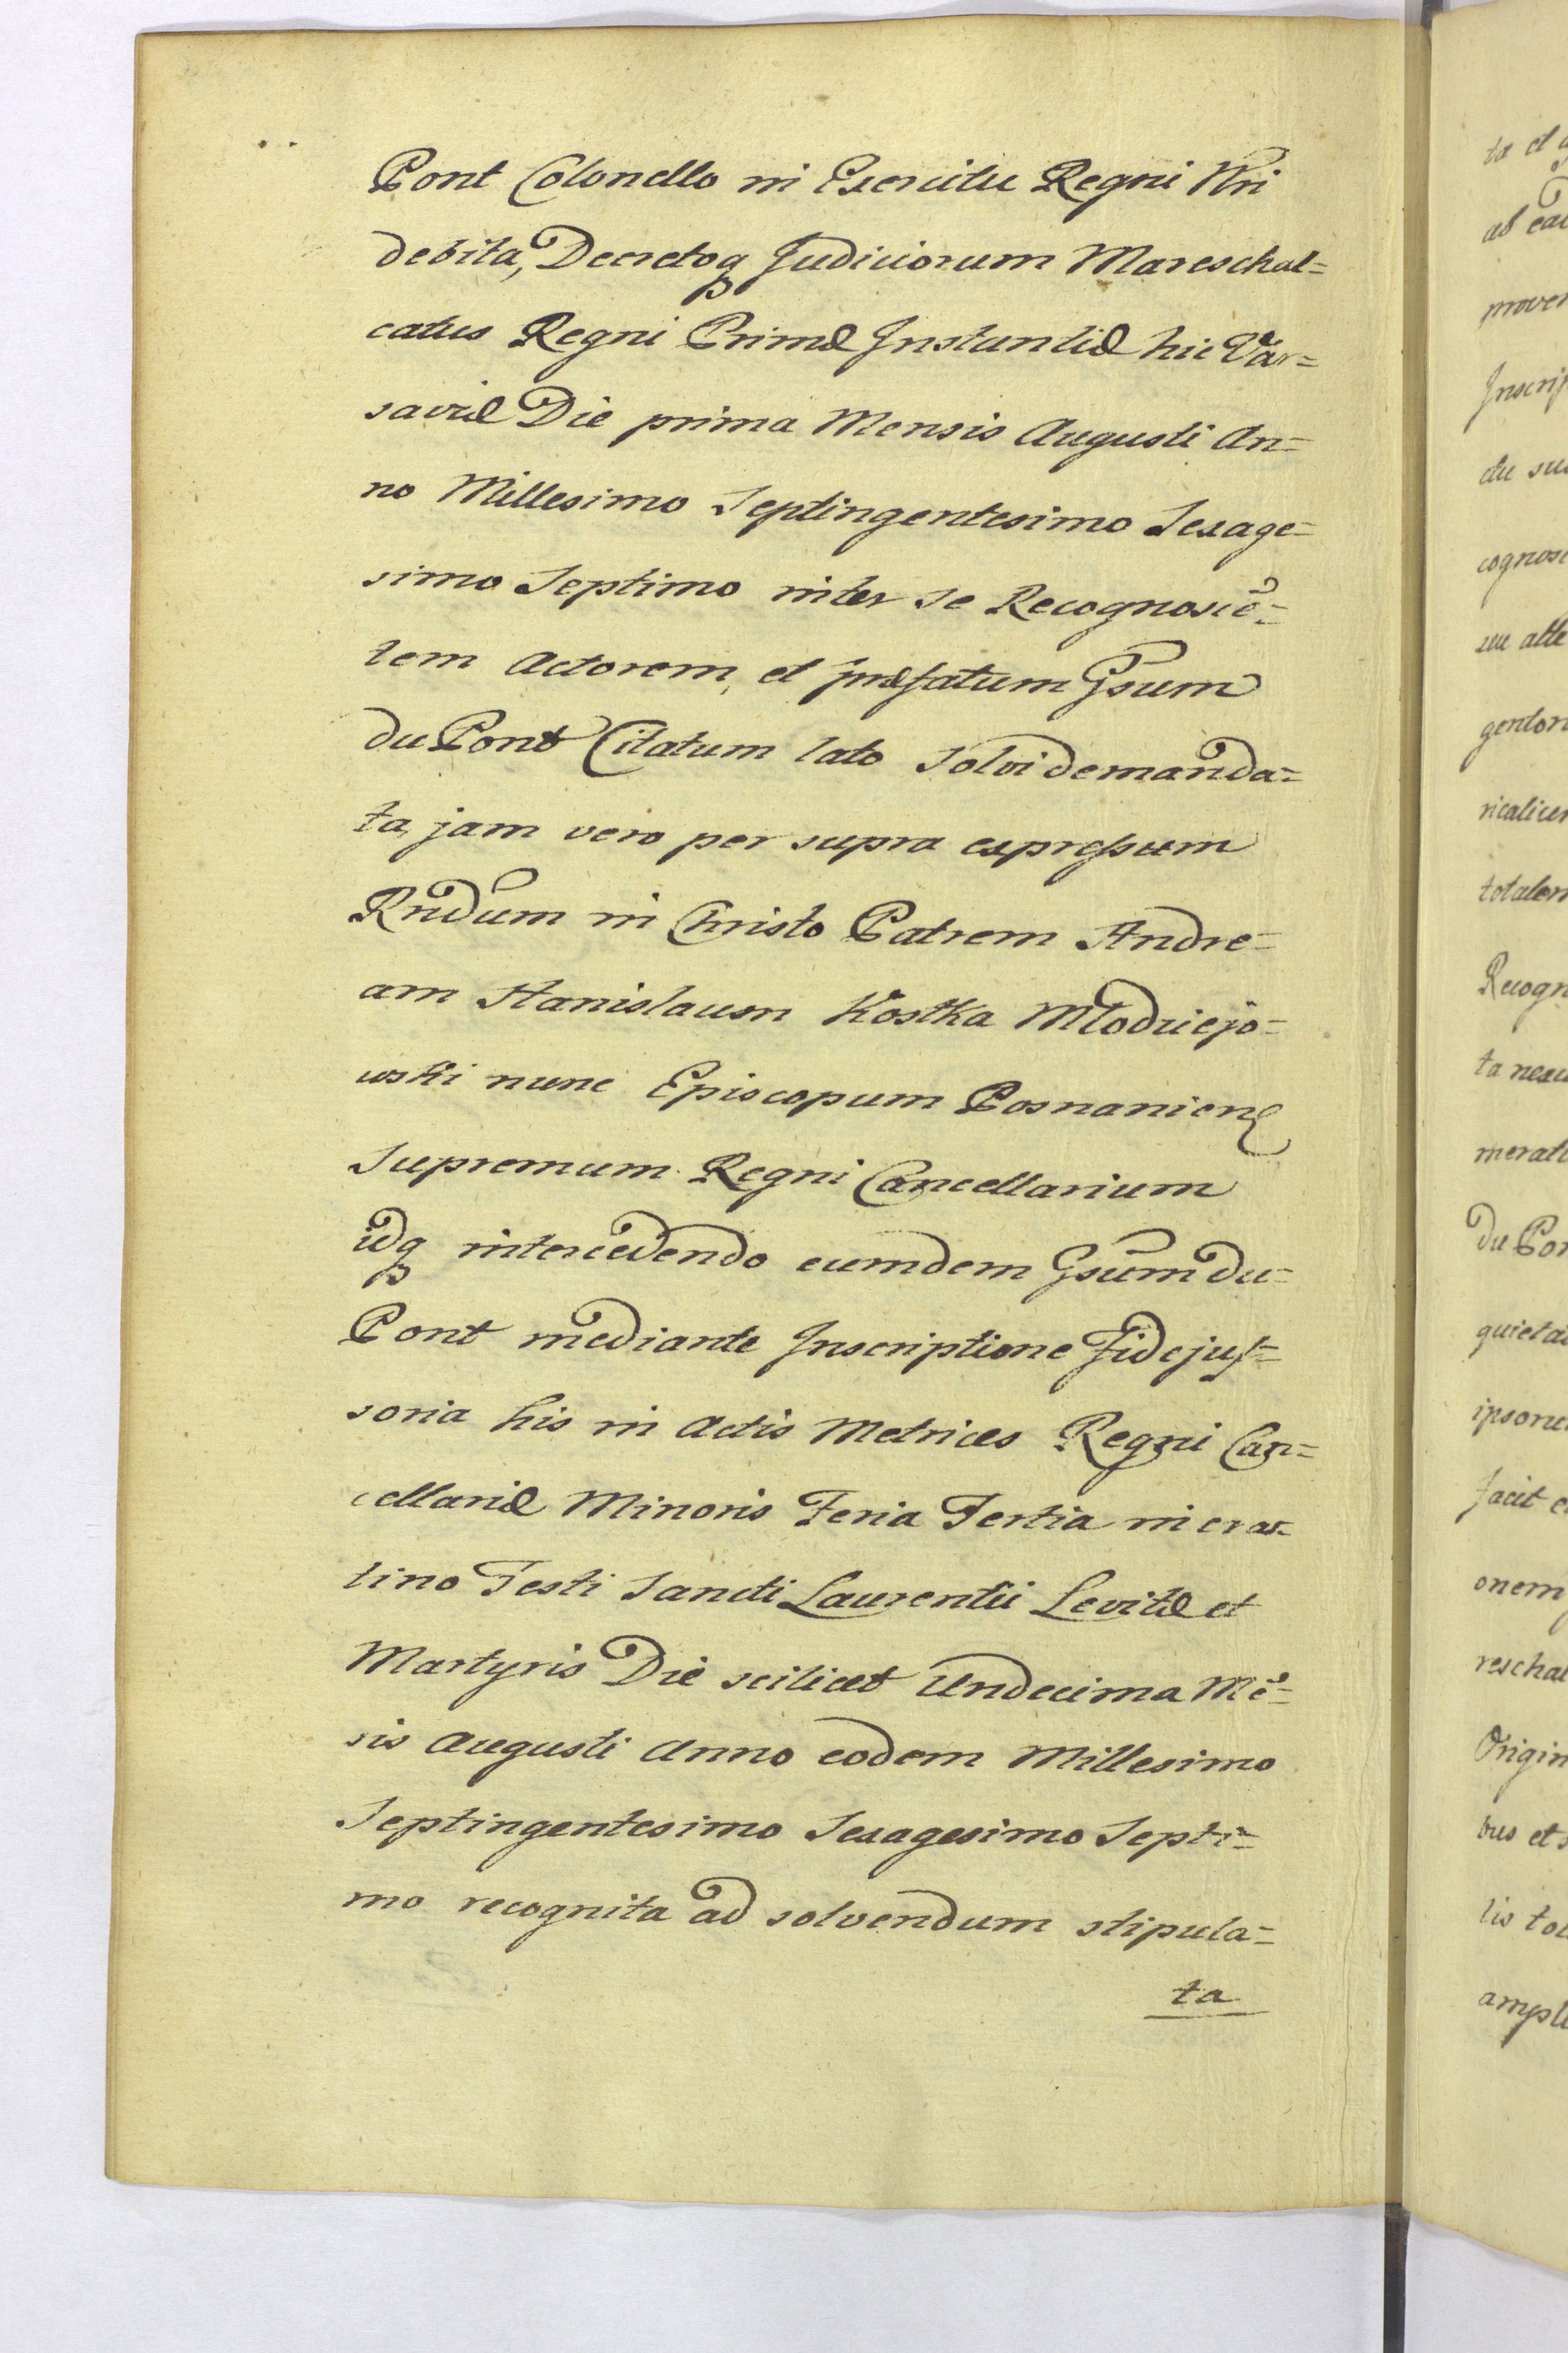 Pont Colonello in Exercitu Regni Nri
debita, Decretoq Judiciorum Mareschal=
catus Regni Primæ Instantiæ hic Var=
saviæ Die prima Mensis Augusti An=
no Millesimo Septingentesimo Sexage=
simo Septimo inter se Recognoscē=
tem Actorem, et præfatum Gsum
du Pont Citatum lato solvi demanda=
ta, jam vero per supra expressum
Rndum in Christo Patrem Andre=
am Stanislaum Kostka Młodziejo=
wski nunc Episcopum Posnanien
Supremum Regni Cancellarium
idq intercedendo eumdem Gsum du=
Pont mediante Inscriptione Fidejus=
soria his in Actis Metrices Regni Can=
cellariæ Minoris Feria Tertia in cras=
tino Festi Sancti Laurentii Levitæ et
Martyris Die scilicet Undecima Mē=
sis Augusti Anno eodem Millesimo
Septingentesimo Sexagesimo Septi=
mo recognita ad solvendum stipula=
ta
ta et
ab
prover
Inscrip
ctu su
cognosc
seu atte
genton
ricalicer
totalem
Recogn
ta nexu
merat
du Pon
quieta
ipsoru
facit
onem
reschal
Origin
bus et
lis to
ampli